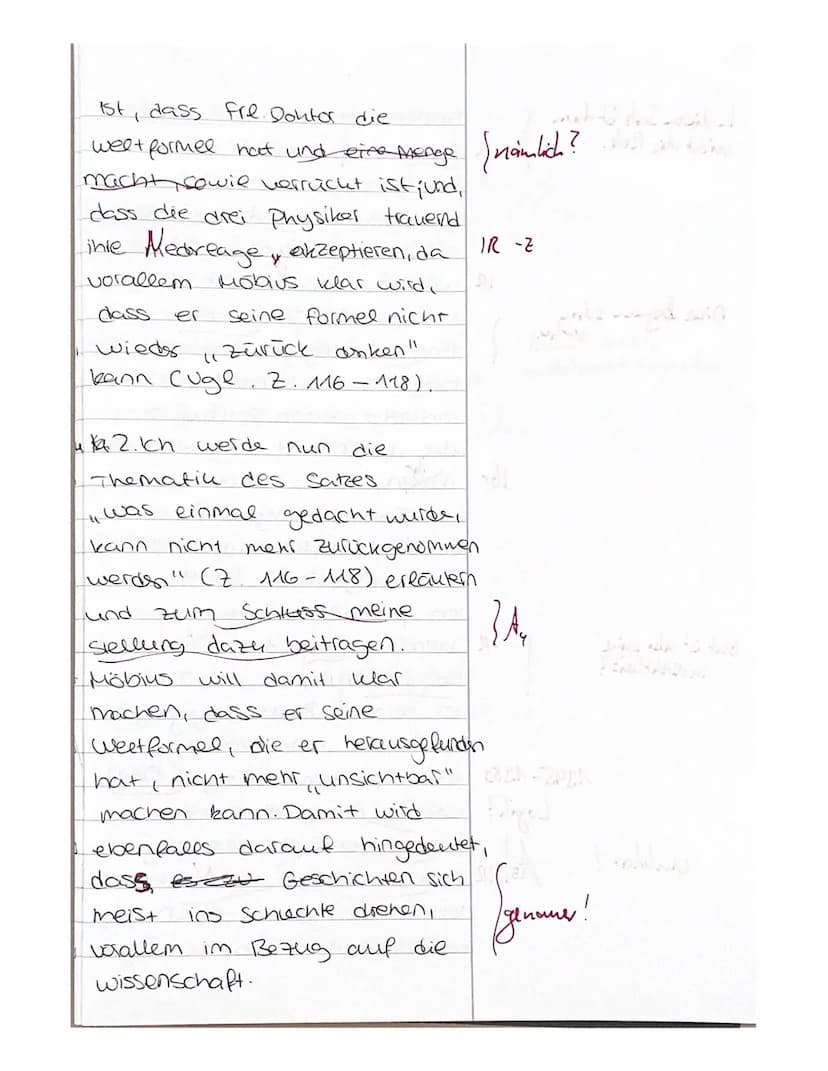 ist, dass Frl. Doktor die
Weltformel hat und eine Menge } nämlich?
macht, sowie verrückt ist; und,
dass die drei Physiker trauend
ihre Niederlage, akzeptieren, da IR -Z
vorallem Möbius klar wird,
dass er seine Formel nicht
wieder „zurück denken"
kann (Vgl. Z. 116-118).
2. Ich werde nun die
Thematik des Satzes
„Was einmal gedacht wurde,
kann nicht mehr zurückgenommen
werden" (Z. 116-118) erläutern
und zum Schluss meine } A
Stellung dazu beitragen.
Möbius will damit klar
machen, dass er seine
Weltformel, die er herausgefunden
hat, nicht mehr „unsichtbar"
machen kann. Damit wird
ebenfalls darauf hingedeutet,
dass es zu Geschichten sich
meist ins Schlechte drehen, genauer!
vorallem im Bezug auf die
Wissenschaft.